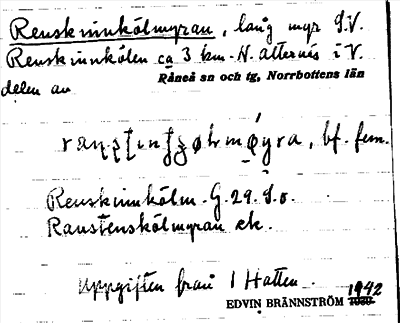 Renskinnkölmyran, lång myr S.V.
Renskinnkölen ca 3 km. N. Alternäs i V.
Råneå sn och tg, Norrbottens län
delen av
bf. fem.
Renskinnkölm. G. 29. S.o.
Raustenskölmyran ek.
Uppgiften från 1 Hatten.
1942
EDVIN BRÄNNSTRÖM 1930